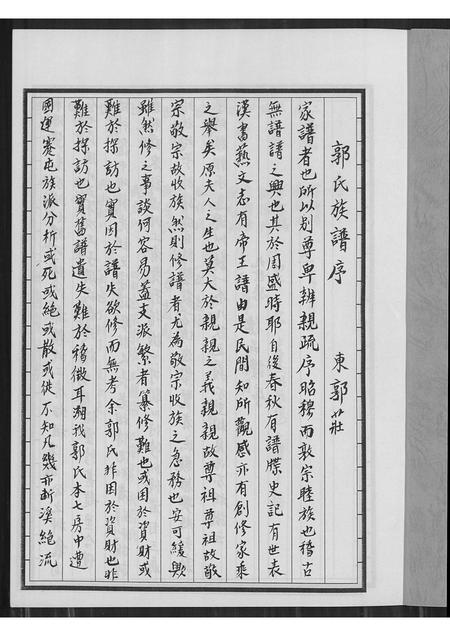 郭氏族譜序　東郭莊
家譜者也所以别尊卑辨親疏序昭穆而敦宗睦族也稽古
無譜譜之興也其於周盛時耶自後春秋有譜牒史記有世表
漢書藝文志有帝王譜由是民間知所觀感亦有創修家乘
之舉矣原夫人之生也莫大於親親之義親親故尊祖尊祖故敬
宗敬宗故收族然則修譜者尤為敬宗收族之急務也安可緩歟
雖然修之事談何容易葢支派繁者纂修難也或困於資財或
難於採訪也實因於譜失欲修而無考余郭氏非困於資財也非
難於採訪也實舊譜遺失難於稽徵耳溯我郭氏本七房中遭
國運蹇屯族派分析或死或絕或散或徙不知凡幾亦斷溪絕流